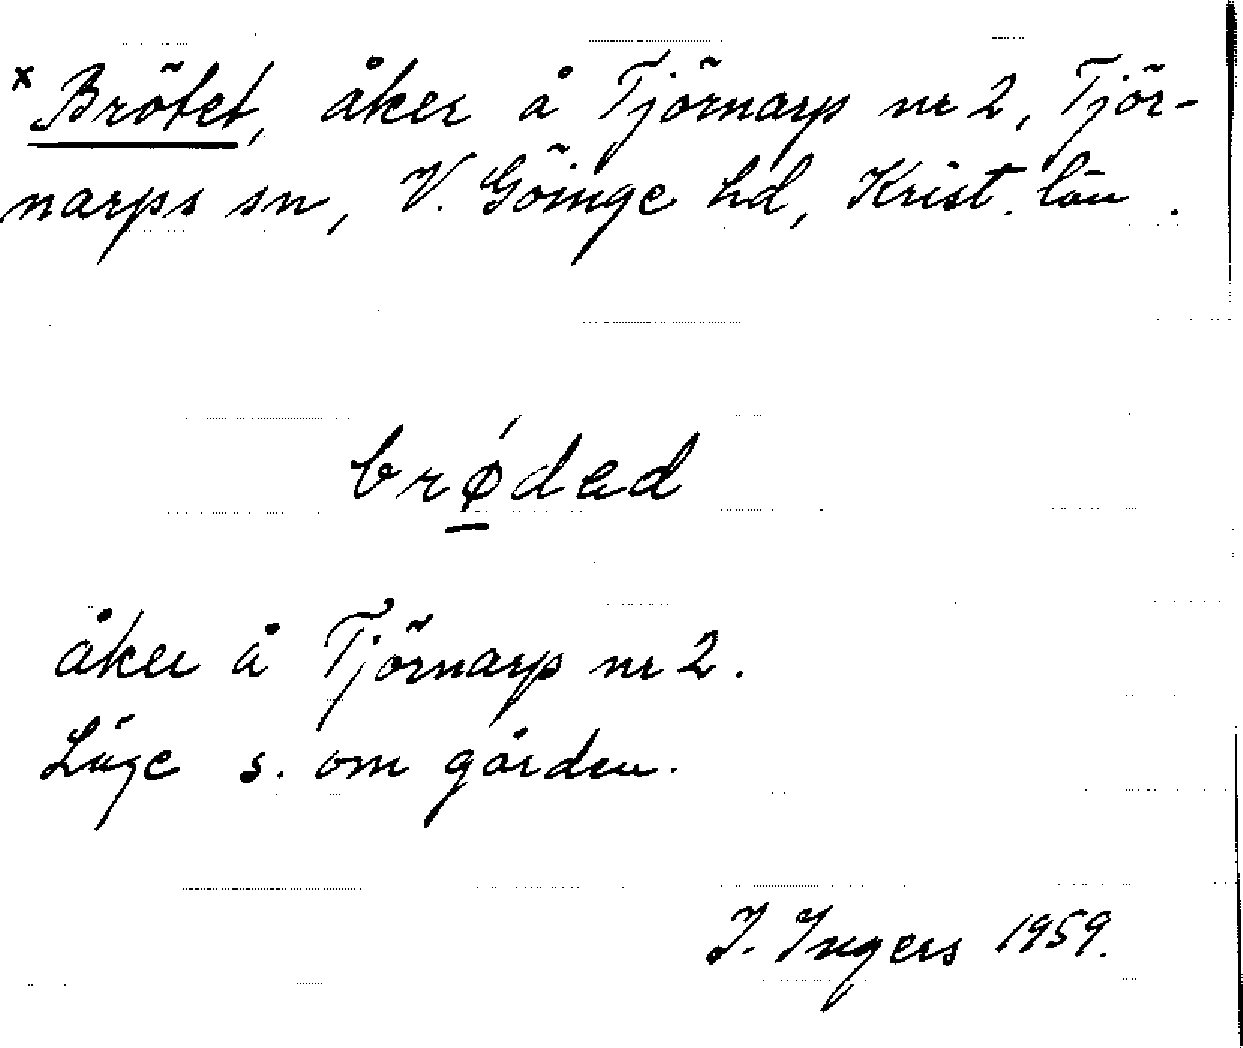 x Brötet, åker å Tjörnarp nr 2, Tjör-
narps sn, V. Göinge hd, Krist. län.
brǿded
åker å Tjörnarp nr 2.
Läge s. om gården.
I. Ingers 1959.